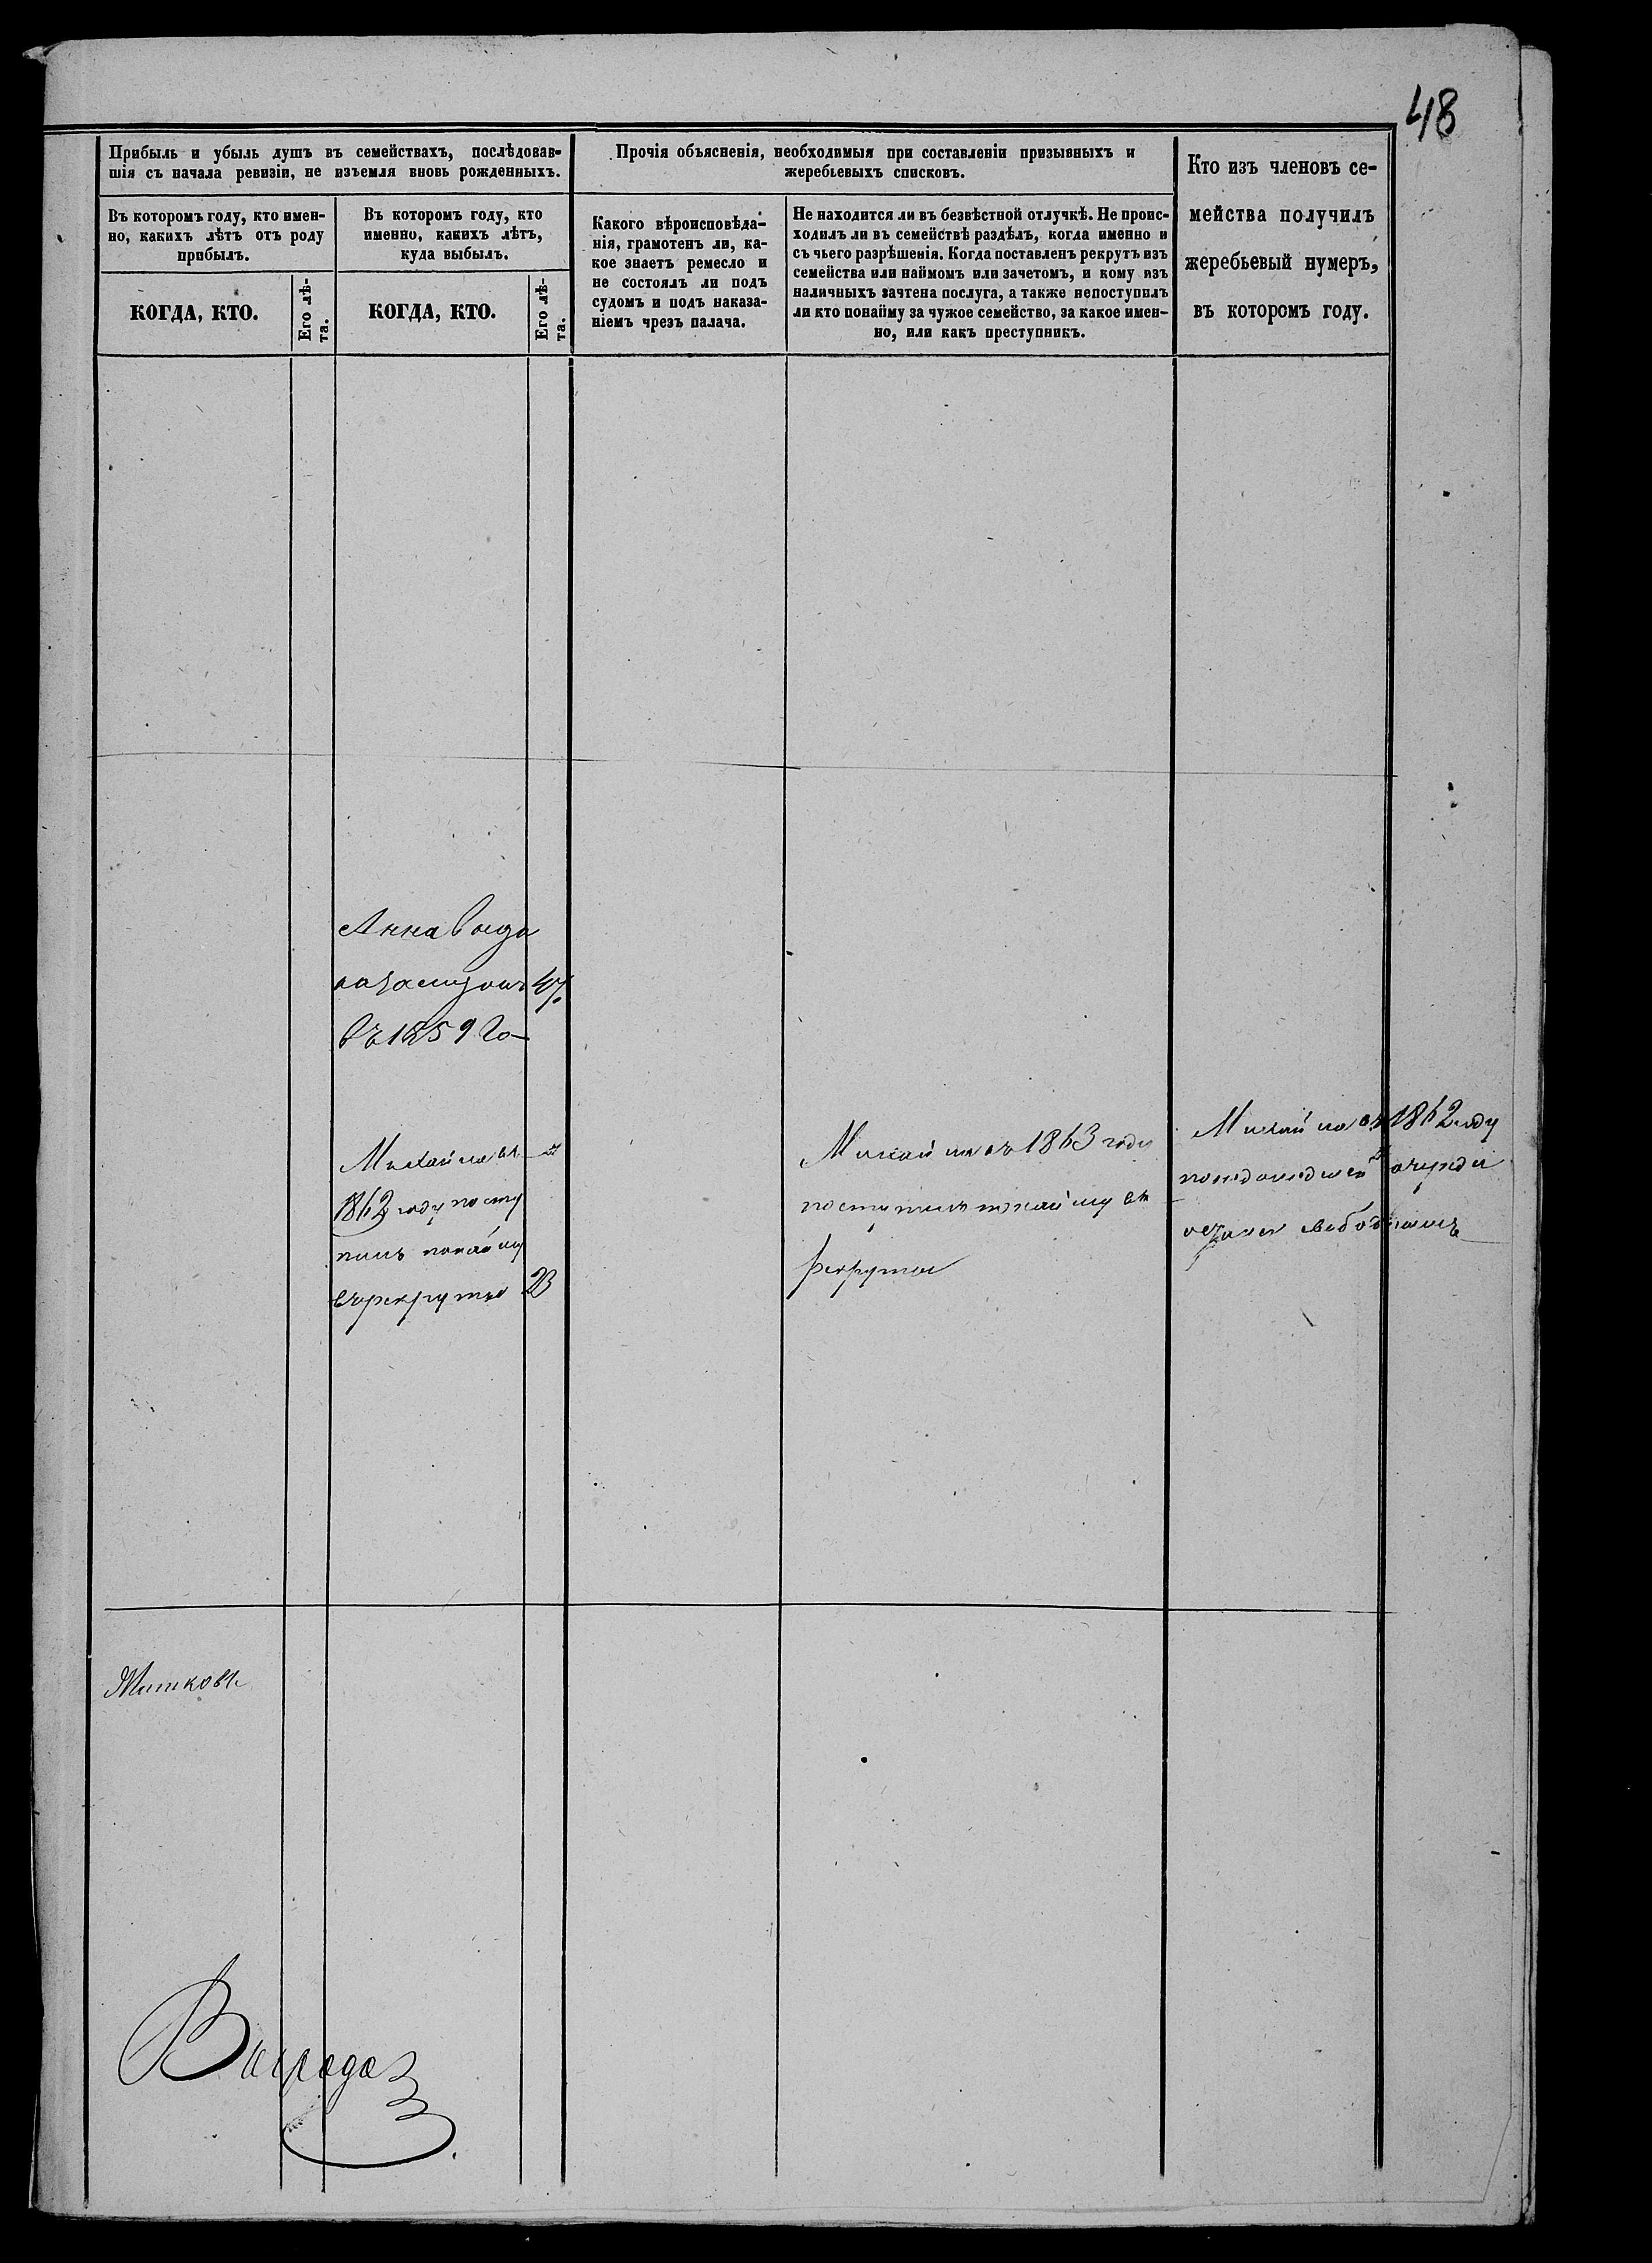 48
Прибыль и убыль душъ въ семействахъ, послѣдовав-
шія съ начала ревизіи, не изъемля вновь рожденныхъ.
Прочія объясненія, необходимыя при составленіи призывныхъ и
жеребьевыхъ списковъ.
Кто изъ членовъ се-
мейства получилъ
жеребьевый нумеръ,
въ которомъ году.
Въ которомъ году, кто имен-
но, какихъ лѣтъ отъ роду
прибылъ.
Въ которомъ году, кто
именно, какихъ лѣтъ,
куда выбылъ.
Какого вѣроисповѣда-
нія, грамотенъ ли, ка-
кое знаетъ ремесло и
не состоялъ ли подъ
судомъ и подъ наказа-
ніемъ чрезъ палача.
Не находится ли въ безвѣстной отлучкѣ. Не проис-
ходилъ ли въ семействѣ раздѣлъ, когда именно и
съ чьего разрѣшенія. Когда поставленъ рекрутъ изъ
семейства или наймомъ или зачетомъ, и кому изъ
наличныхъ зачтена послуга, а также непоступилъ
ли кто понайму за чужое семейство, за какое имен-
но, или какъ преступникъ.
КОГДА, КТО.
Его лѣ-
та.
КОГДА, КТО.
Его лѣ-
та.
Анна
47
въ 1859 го-
въ
1862 году посту
пилъ понайму
въ рекруты 23
въ 1863 году
поступилъ понайму въ
рекруты
въ 1862 году
очереди
свободнымъ